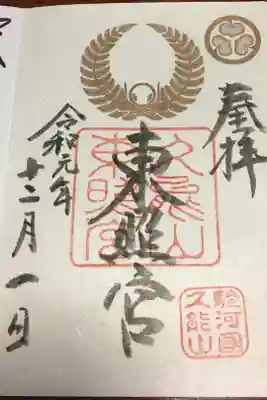 奉拝
東照宮
久能山
東照宮
駿河国
久能山
令和元年
十二月一日